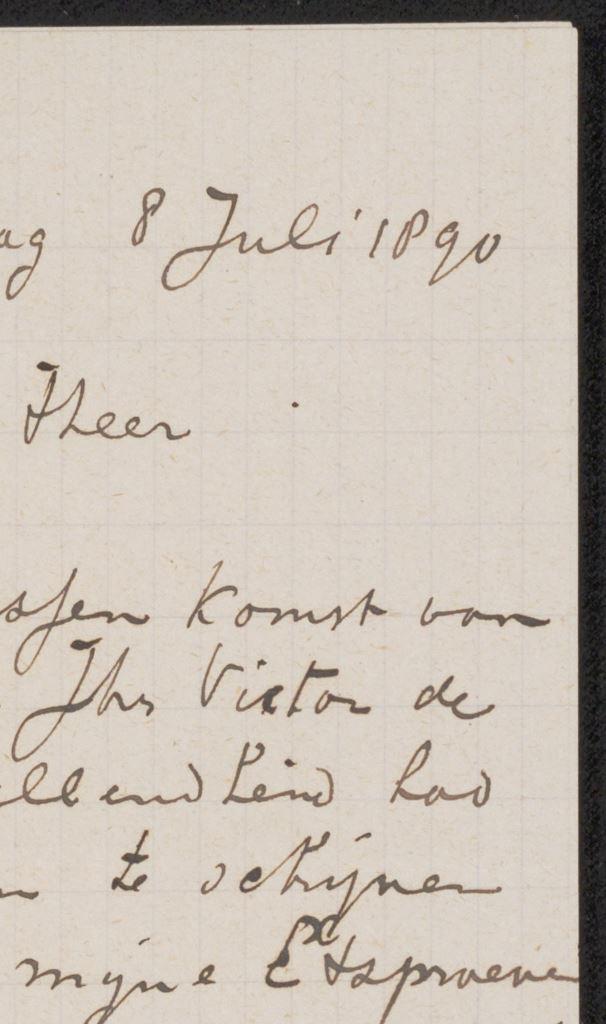 ag 8 Juli 1890
Heer
ssen komst van
Jhr Victor de
ellend Leind had
n te schijnen
mijne Etsproeven